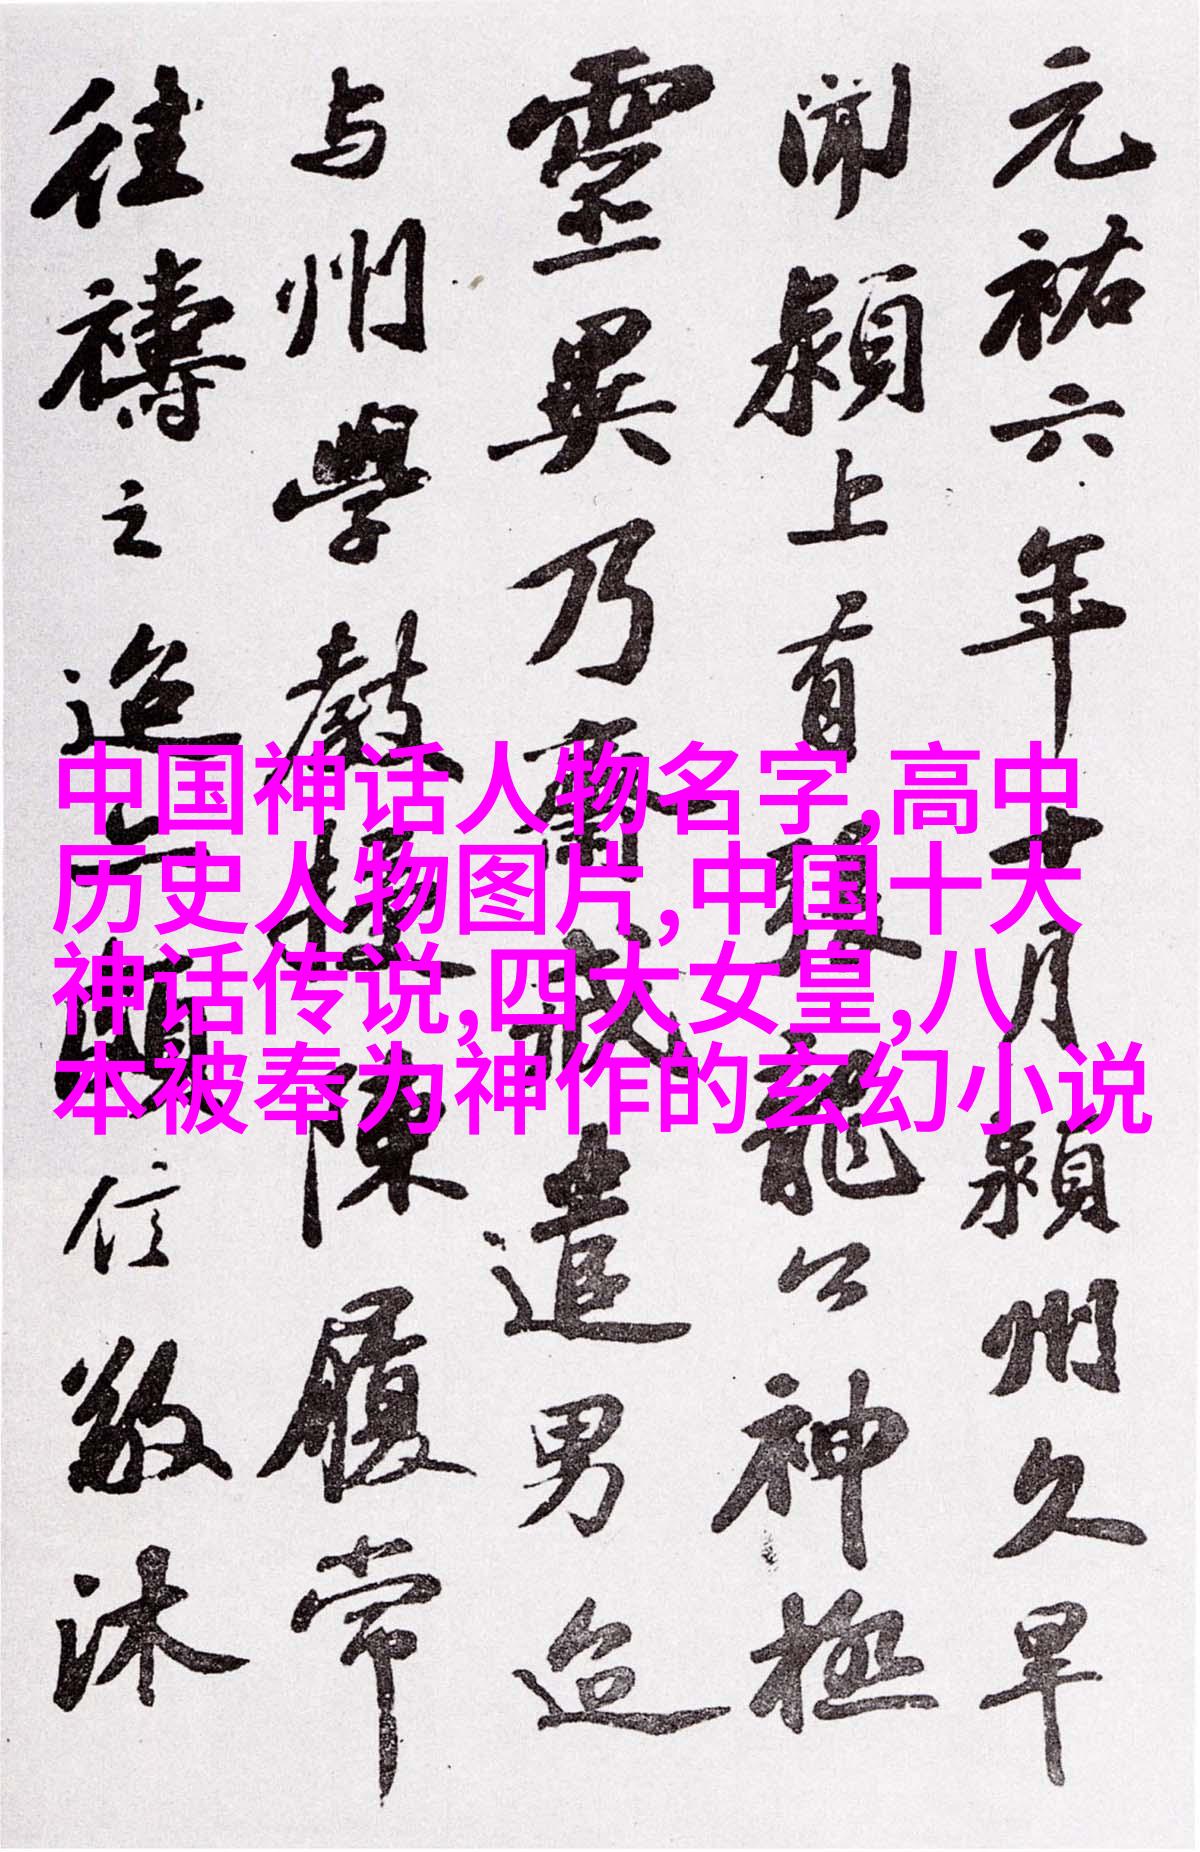 元祐六年十月潁州久旱
聞潁上有張龍公神極
靈異乃齋戒遣男迨
与州學教授陳履常
往禱之迨亦頗信敬沐
中国神话人物名字,高中
历史人物图片,中国十大
神话传说,四大女皇,八
本被奉为神作的玄幻小说